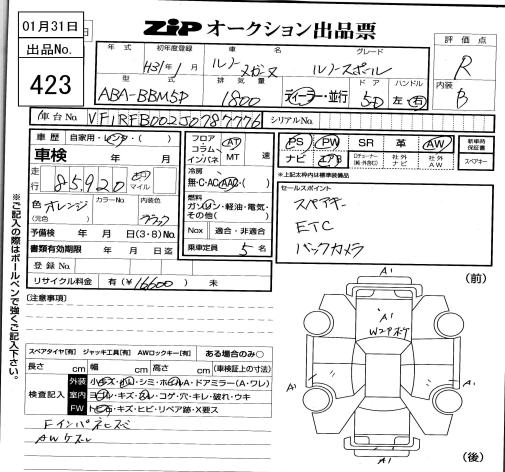 01月31日
出品No.
423
ZIP オークション出品票
評価点
R
内装
B
年式 初年度登録 車名 グレード
H31年1月 ルノー メガーヌ ルノースポール
型式 排気量 ドア ハンドル
ABA-BBM5P 1800 ディーラー・並行 5D 左・右
車台No. VF1RFB002J0787776 シリアルNo.
車歴 自家用・レンタ・( )
車検 年 月
走行 85,920 km マイル
色 オレンジ (元色) カラーNo. 内装色 ブラック
予備検 年 月 日(3・8)No.
書類有効期限 年 月 日迄
登録No.
リサイクル料金 有(¥16600) 未
フロア コラム インパネ AT MT 速
冷房 無・C・AC・AAC・( )
燃料 ガソリン・軽油・電気・その他( )
Nox 適合・非適合
乗車定員 5 名
PS PW SR 革 AW
ナビ エアB Dチューナー(純・外含む) 社外ナビ 社外AW
新車時保証書
スペアキー
※上記太枠内は標準装備品
セールスポイント
スペアキー
ETC
バックカメラ
(注意事項)
スペアタイヤ[有] ジャッキ工具[有] AWロックキー[有] ある場合のみ○
長さ cm 幅 cm 高さ cm (車検証上の寸法)
検査記入
外装 小キズ・凹ム・シミ・ホイルA・ドアミラー(A・ワレ)
室内 ヨゴレ・キズ・スレ・コゲ・穴・キレ・破れ・ウキ
FW トビ石・キズ・ヒビ・リペア跡・X要ス
AWケズレ
※ご記入の際はボールペンで強くご記入下さい。
(前)
A1
A1
A1
A1
A1
(後)